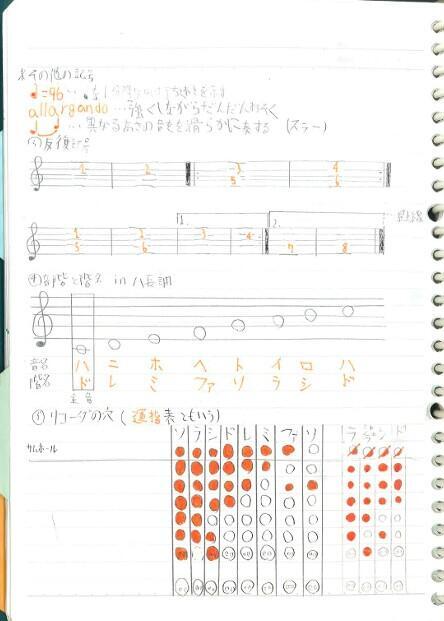 *その他の記号
♩=96
allargando …強くしながらだんだんおそく
…異なる高さの音を滑らかに奏する (スラー)
反復記号
1 2 3 4
5 6
1. 2.
1 2 3 4
5 6 7 8
音階と階名 in ハ長調
音名 ハ ニ ホ ヘ ト イ ロ ハ
階名 ド レ ミ ファ ソ ラ シ ド
主音
リコーダの穴 (運指表ともいう)
ソ ラ シ ド レ ミ ファ ソ
サムホール